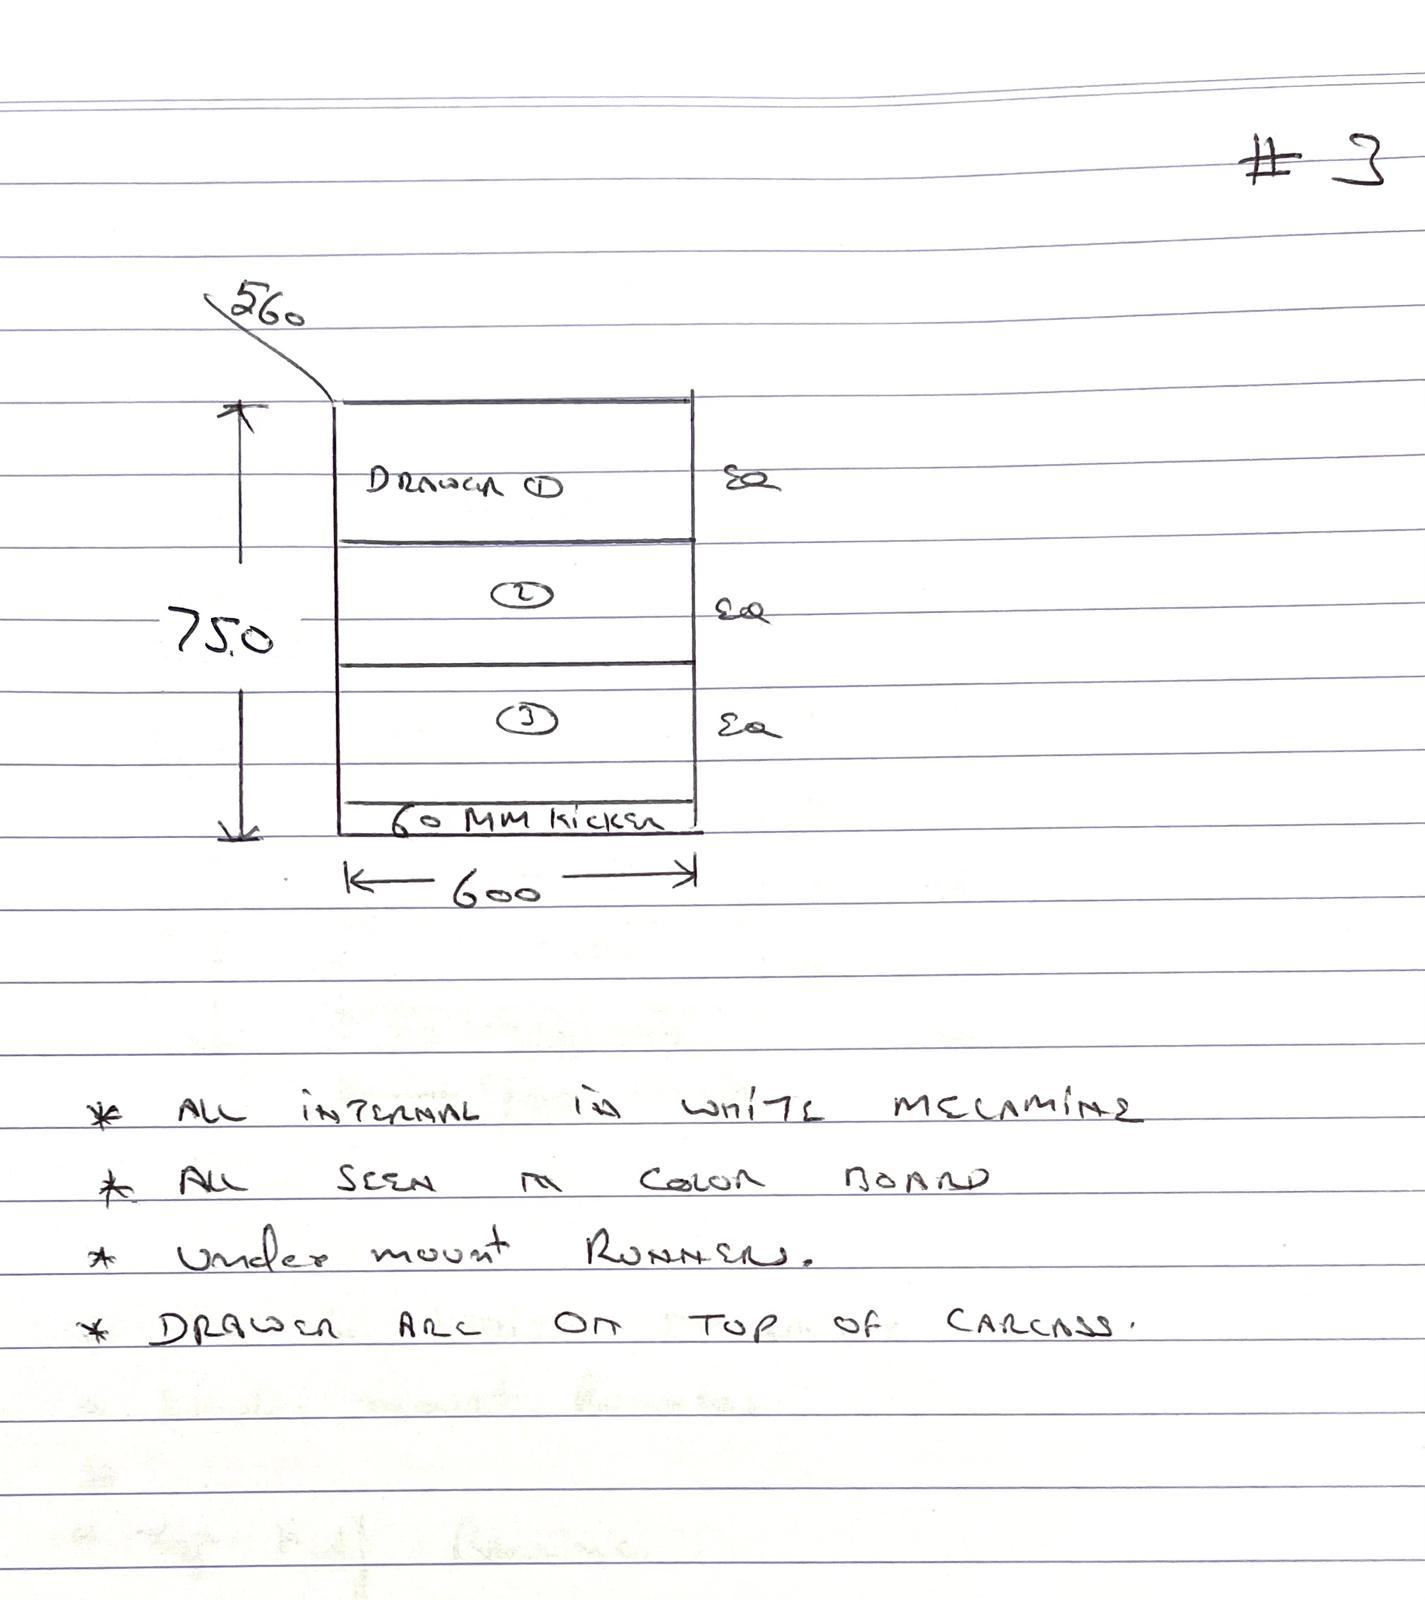 # 3
560
DRAWER ①
EQ
750
②
EQ
③
EQ
60 MM KICKER
600
* ALL INTERNAL IN WHITE MELAMINE
* ALL SEEN IN COLOR BOARD
* Under mount RUNNERS.
* DRAWER ARE ON TOP OF CARCASS.